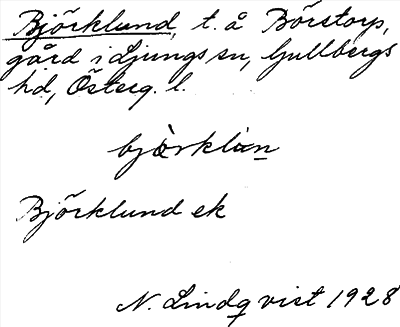 Björklund, t. å Börstorp,
gård i Ljungs sn, Gullbergs
hd, Österg. l.
bjòrklàn
Björklund ek
N. Lindqvist 1928